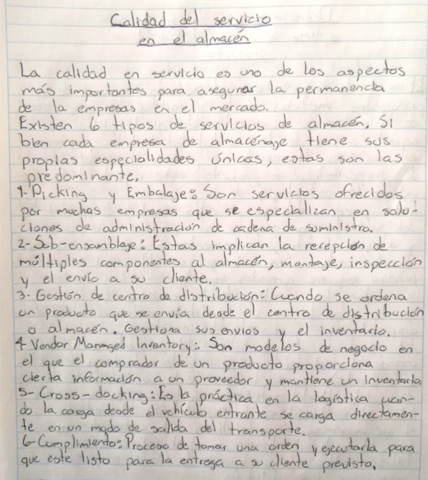 Calidad del servicio
en el almacén
La calidad en servicio es uno de los aspectos
más importantes para asegurar la permanencia
de la empresas en el mercado.
Existen 6 tipos de servicios de almacén. Si
bien cada empresa de almacénaje tiene sus
propias especialidades únicas, estas son las
predominante.
1- Picking y Embalaje: Son servicios ofrecidos
por muchas empresas que se especializan en solu-
ciones de administración de cadena de suministro.
2- Sub-ensamblaje: Estas implican la recepción de
múltiples componentes al almacén, montaje, inspección
y el envío a su cliente.
3- Gestión de centro de distribución: Cuando se ordena
un producto que se envía desde el centro de distribución
o almacén. Gestiona sus envios y el inventario.
4- Vendor Managed Inventory: Son modelos de negocio en
el que el comprador de un producto proporciona
cierta información a un proveedor y mantiene un inventario
5- Cross-docking: Es la práctica en la logística cuan-
do la carga desde el vehículo entrante se carga directamen-
te en un modo de salida del transporte.
6- Cumplimiento: Proceso de tomar una orden y ejecutarla para
que este listo para la entrega a su cliente previsto.